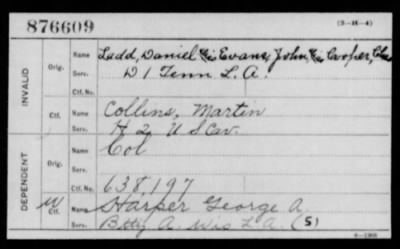 876609
(3-H-4)
INVALID
Orig.
Name Ladd, Daniel Evans, John, Cooper,
Serv. D 1 Tenn L. A.
Ctf. No.
Ctf.
Name Collins, Martin
Serv. H 2 U S Cav.
DEPENDENT
Orig.
Name Col
Serv.
Ctf. No. 638,197
Ctf.
Name Harper George A
Serv. Btty A. Wis L A. (S)